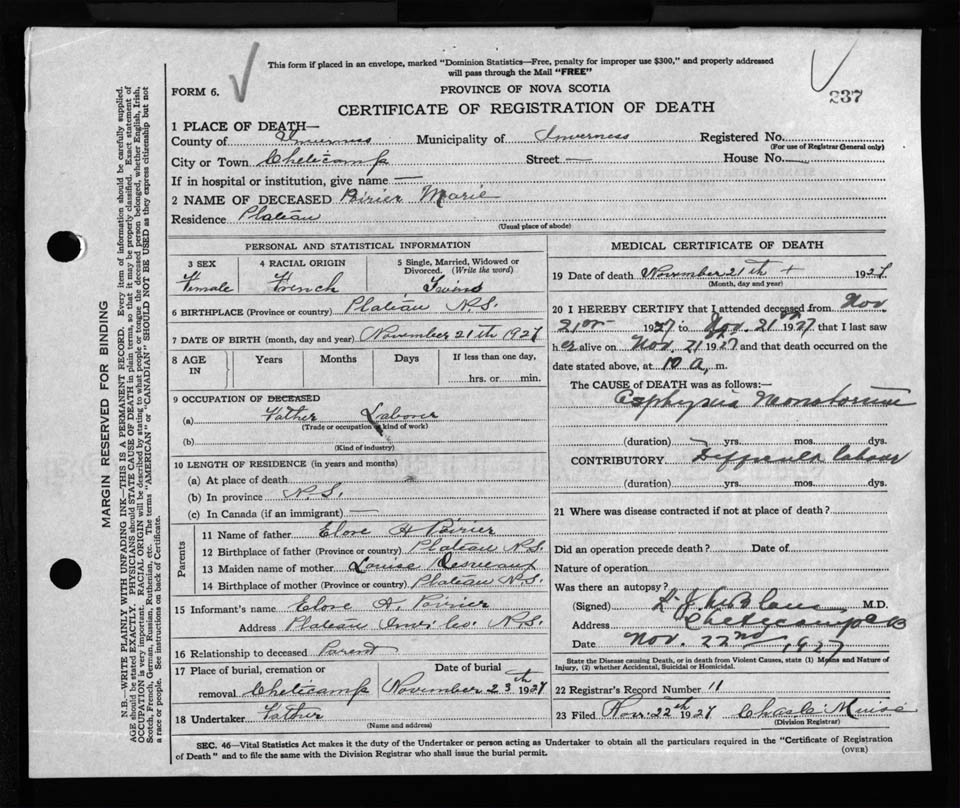 This form if placed in an envelope, marked "Dominion Statistics—Free, penalty for improper use $300," and properly addressed
will pass through the Mail "FREE"
FORM 6.
PROVINCE OF NOVA SCOTIA
237
CERTIFICATE OF REGISTRATION OF DEATH
1 PLACE OF DEATH—
County of Inverness Municipality of Inverness Registered No.
(For use of Registrar General only)
City or Town Cheticamp Street — House No. —
If in hospital or institution, give name —
2 NAME OF DECEASED Poirier Marie
Residence Plateau
(Usual place of abode)
PERSONAL AND STATISTICAL INFORMATION
3 SEX 4 RACIAL ORIGIN 5 Single, Married, Widowed or
Divorced. (Write the word)
Female French
6 BIRTHPLACE (Province or country) Plateau N.S.
7 DATE OF BIRTH (month, day and year) November 21th 1927
8 AGE IN Years Months Days If less than one day,
hrs. or min.
9 OCCUPATION OF DECEASED
(a) Father Labour
(Trade or occupation or kind of work)
(b)
(Kind of industry)
10 LENGTH OF RESIDENCE (in years and months)
(a) At place of death
(b) In province N.S.
(c) In Canada (if an immigrant) —
Parents
11 Name of father Elore A Poirier
12 Birthplace of father (Province or country) Plateau N.S.
13 Maiden name of mother Louise Desveaux
14 Birthplace of mother (Province or country) Plateau N.S.
15 Informant's name Elore A. Poirier
Address Plateau Inv. Co. N.S.
16 Relationship to deceased Parent
17 Place of burial, cremation or Date of burial
removal Cheticamp November 23th 1927
18 Undertaker Father
(Name and address)
MEDICAL CERTIFICATE OF DEATH
19 Date of death November 21th + 1927
(Month, day and year)
20 I HEREBY CERTIFY that I attended deceased from Nov.
21 1927 to Nov. 21 1927 that I last saw
her alive on Nov. 21 1927 and that death occurred on the
date stated above, at 10 A. m.
The CAUSE of DEATH was as follows:—
Asphyxia Neonatorum
(duration) yrs. mos. dys.
CONTRIBUTORY Difficult labour
(duration) yrs. mos. dys.
21 Where was disease contracted if not at place of death?
Did an operation precede death? Date of
Nature of operation
Was there an autopsy?
(Signed) M.D.
Address Cheticamp CB
Date Nov. 22nd, 1927
State the Disease causing Death, or in death from Violent Causes, state (1) Means and Nature of
Injury, (2) whether Accidental, Suicidal or Homicidal.
22 Registrar's Record Number 11
23 Filed Nov. 22th 1927 Charles
(Division Registrar)
SEC. 46—Vital Statistics Act makes it the duty of the Undertaker or person acting as Undertaker to obtain all the particulars required in the "Certificate of Registration
of Death" and to file the same with the Division Registrar who shall issue the burial permit.
(OVER)
MARGIN RESERVED FOR BINDING
N.B.—WRITE PLAINLY WITH UNFADING INK—THIS IS A PERMANENT RECORD. Every item of information should be carefully supplied.
AGE should be stated EXACTLY. PHYSICIANS should STATE CAUSE OF DEATH in plain terms, so that it may be properly classified. Exact statement of
OCCUPATION is very important. RACIAL ORIGIN will be described by stating to what people or tongue the deceased person belonged, whether English, Irish,
Scotch, French, German, Russian, Ruthenian, etc. The terms "AMERICAN" or "CANADIAN" SHOULD NOT BE USED as they express citizenship but not
a race or people. See instructions on back of Certificate.